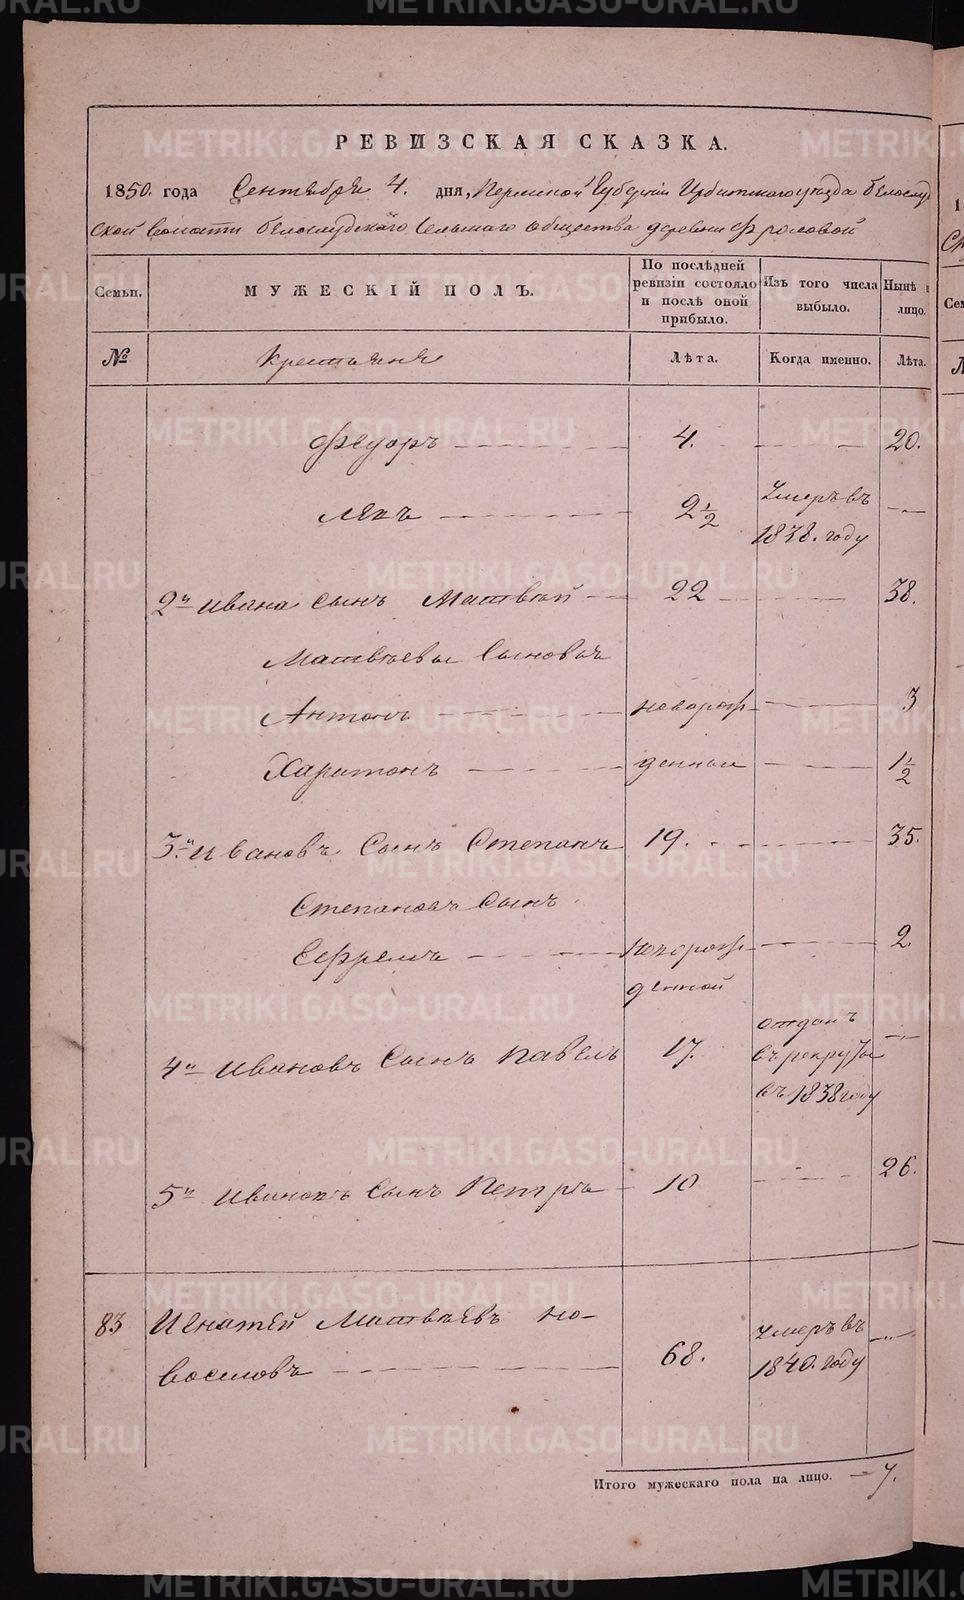 РЕВИЗСКАЯ СКАЗКА.
1850. года Сентября 4. дня, Пермской Губерніи Ирбитскаго уезда белослуд
ской волости белослудскаго сельскаго общества деревни Фроловой
Семьи. МУЖЕСКІЙ ПОЛЪ. По послѣдней ревизіи состояло и послѣ оной прибыло. Изъ того числа выбыло. Нынѣ на лицо.
№ Крестьяня Лѣта. Когда именно. Лѣта.
Федоръ 4. 20.
Левъ 2 1/2 Умеръ въ 1838. году
2й Ивана Сынъ Матвѣй 22 38.
Матвѣевы Сыновья
Антонъ новорож 3
Харитонъ денныи 1 1/2
3й Ивановъ Сынъ Степанъ 19. 35.
Степановъ Сынъ
Ефремъ новорож 2
денной
4й Ивановъ Сынъ Павелъ 17. отданъ въ рекруты въ 1838 году
5й Ивановъ Сынъ Петръ 10 26.
83 Игнатей Матвѣевъ Но-
воселовъ 68. Умеръ въ 1840. году
Итого мужескаго пола на лицо. 7.
METRIKI.GASO-URAL.RU